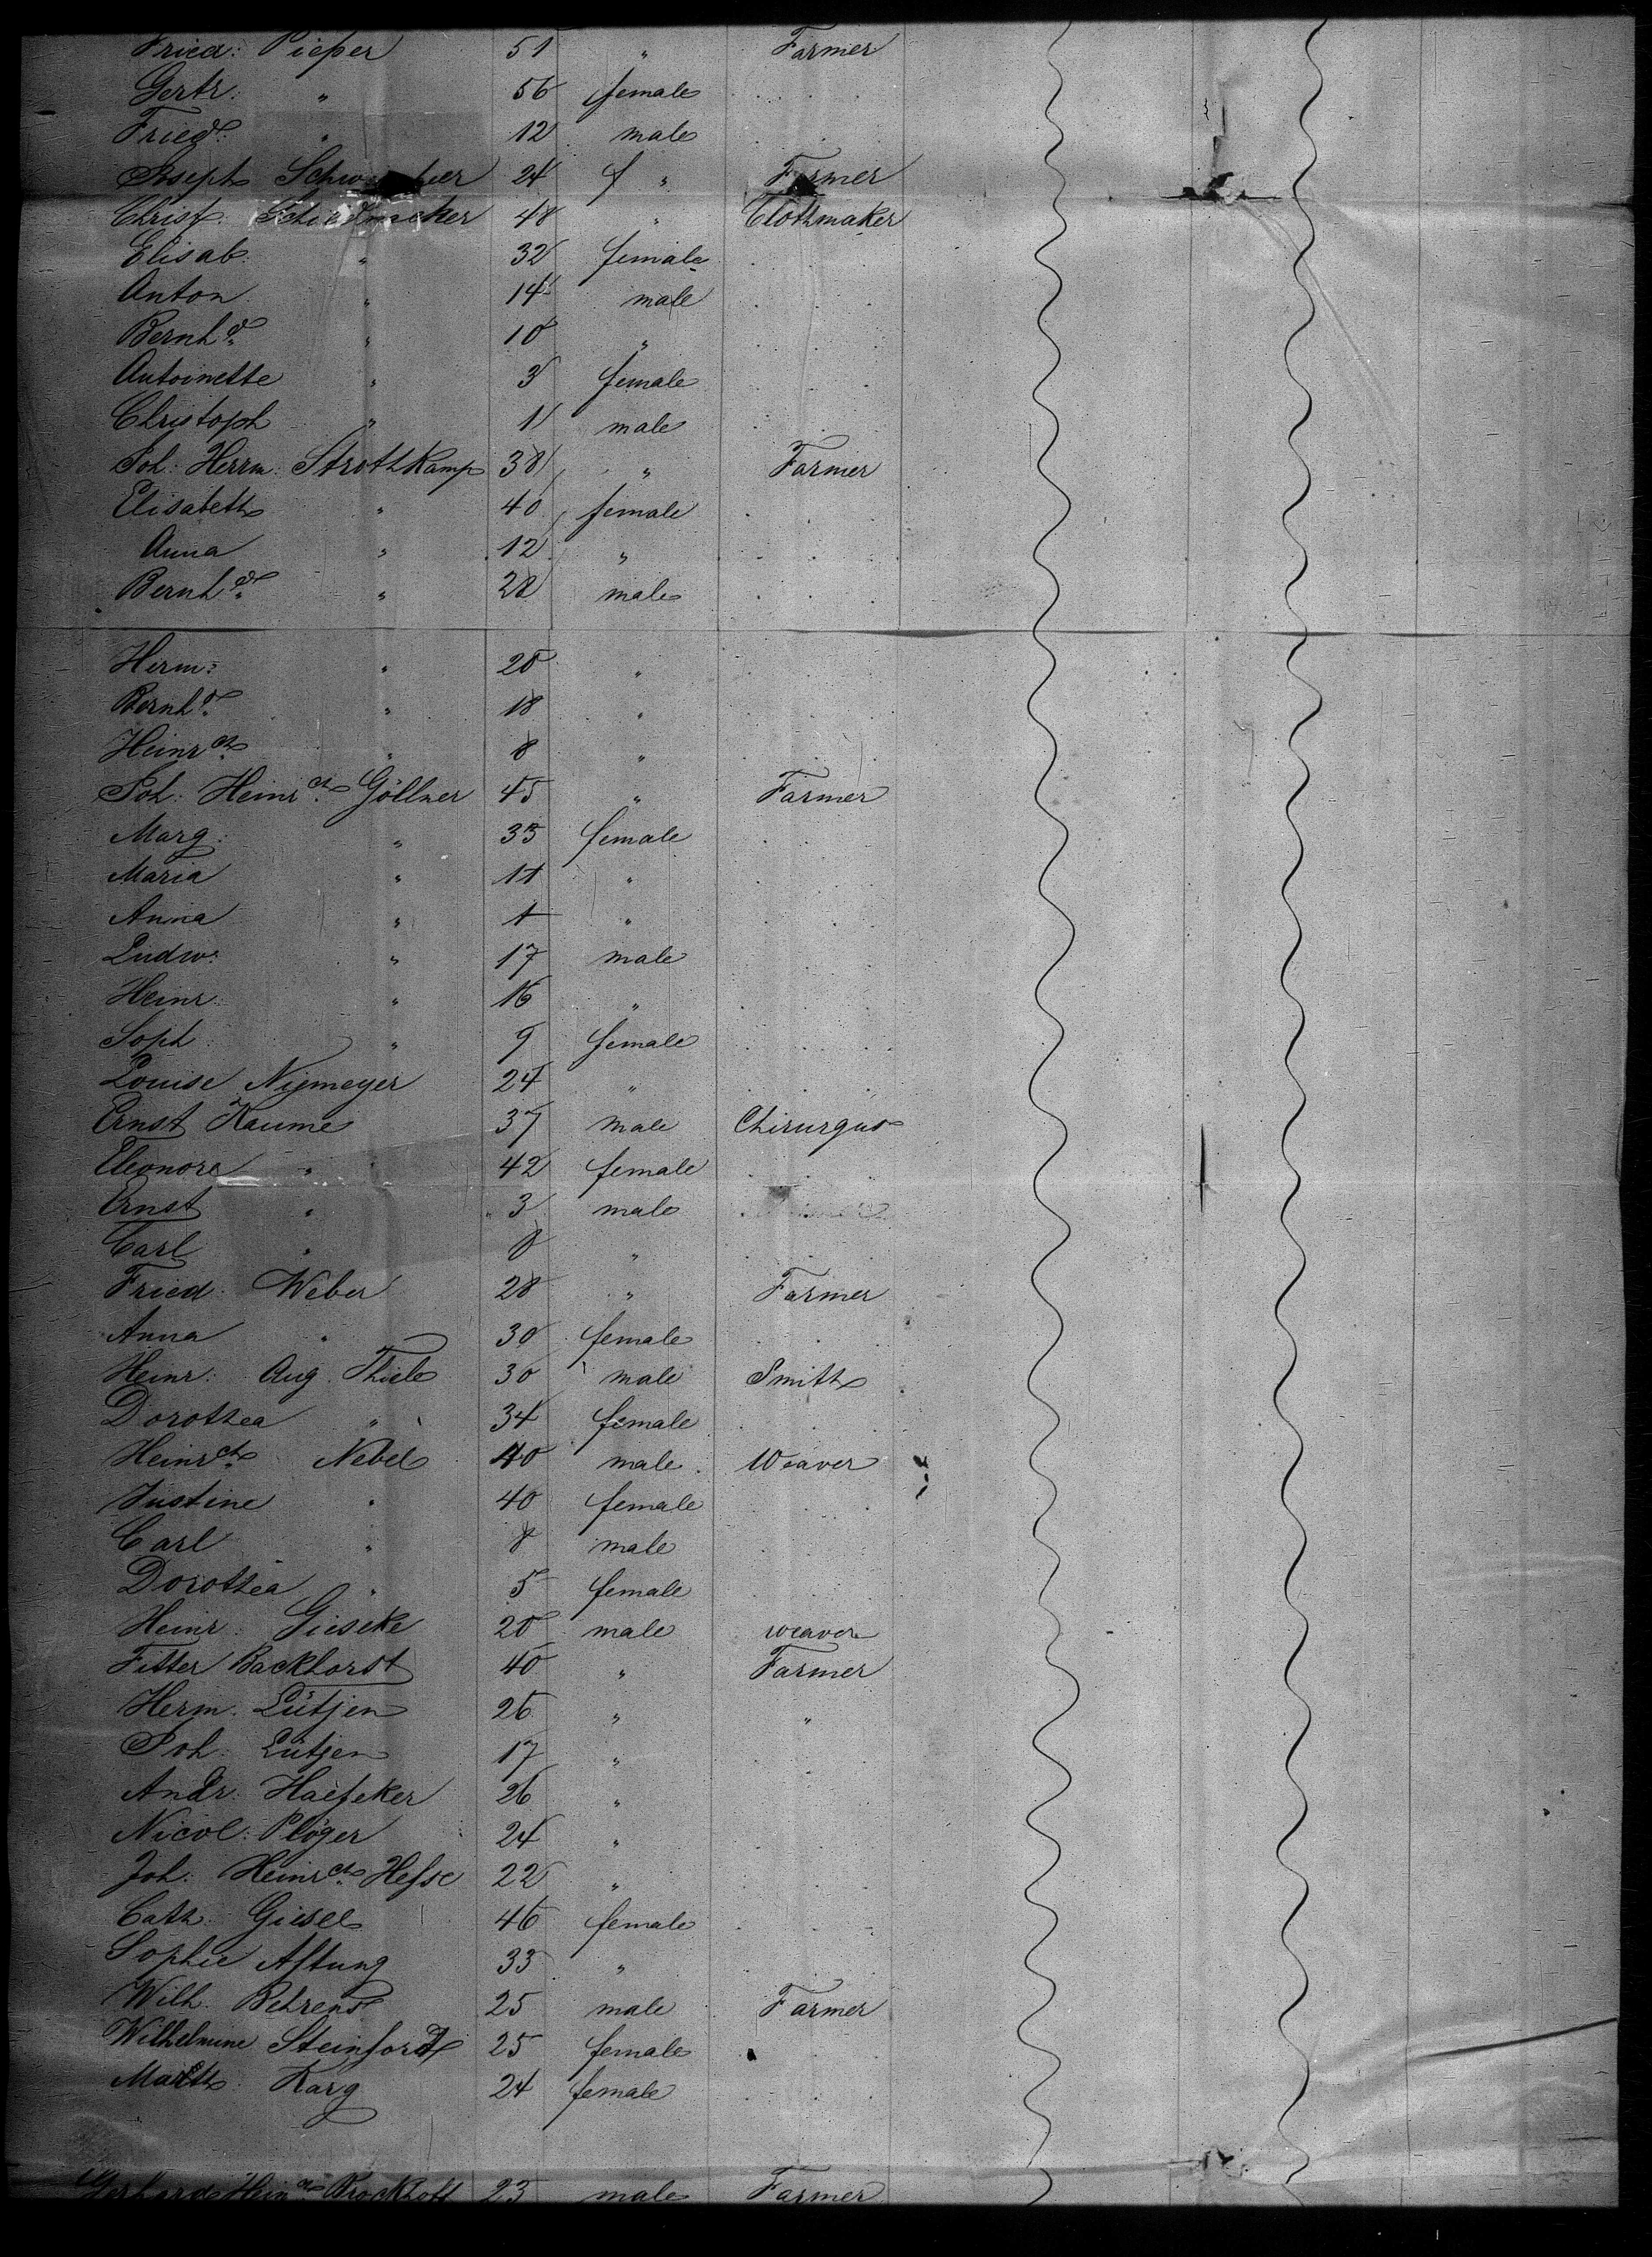 Fried: Pieper 51 " Farmer
Gertr. " 56 female
Fried. " 12 male
Joseph 24 " Farmer
Christ. 48 " Clothmaker
Elisab. " 32 female
Anton " 14 male
Bernhd. " 10 "
Antoinette " 3 female
Christoph " 1 male
Joh: Herrm: Strothkamp 38 " Farmer
Elisabeth " 40 female
Anna " 12 "
Bernhd. " 28 male
Herm: " 20 "
Bernhd. " 18 "
Heinrch. " 8 "
Joh: Heinrch. Göllner 45 " Farmer
Marg: " 35 female
Maria " 11 "
Anna " 1 "
Ludw: " 17 male
Heinr. " 16 "
Soph. " 9 female
Louise Nijmeyer 24 "
Ernst Kaume 37 male Chirurgus
Eleonore " 42 female
Ernst " 3 male
Carl " 8 "
Fried. Weber 28 " Farmer
Anna " 30 female
Heinr: Aug. Thiele 30 male Smith
Dorothea " 34 female
Heinrch. Nebel 40 male Weaver
Justine " 40 female
Carl " 8 male
Dorothea " 5 female
Heinr: Gieseke 20 male weaver
Fitter Backhorst 40 " Farmer
Herm. Lütjen 26 " "
Joh: Lütjen 17 "
Andr: Haefeker 26 "
Nicol: Plöger 24 "
Joh. Heinrch. Hesse 22 "
Cath. Giesel 46 female
Sophie Astung 33 "
Wilh. Behrens 25 male Farmer
Wilhelmine Steinford 25 female
Karg 24 female
Gerhard Heinrch. Brockhoff 23 male Farmer